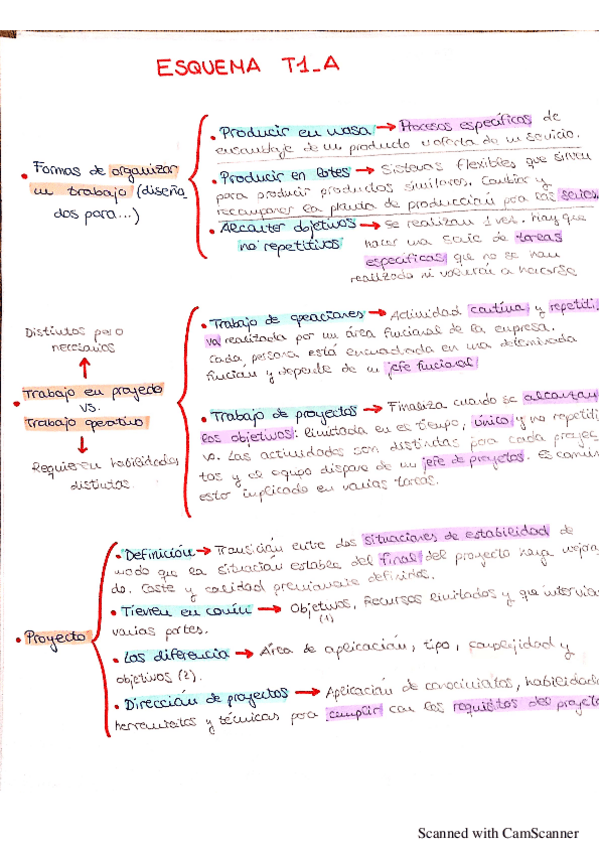 ESQUEMA T1_A
• Formas de organizar
un trabajo (diseña
dos para...)
• Producir en masa → Procesos específicos de
ensamblaje de un producto u oferta de un servicio.
• Producir en lotes → Sistemas flexibles que sirven
para producir productos similares. Cambiar y
recomponer la planta de producción para las series.
• Alcanzar objetivos
no repetitivos → Se realizan 1 vez. Hay que
hacer una serie de tareas
específicas que no se han
realizado ni volverán a hacerse
Distintos pero
necesarios
• Trabajo en proyecto
vs.
Trabajo operativo
Requieren habilidades
distintas
• Trabajo de operaciones → Actividad continua y repetiti
va realizada por un área funcional de la empresa.
Cada persona está encuadrada en una determinada
función y depende de un jefe funcional
• Trabajo de proyectos → Finaliza cuando se alcanzan
los objetivos: limitada en el tiempo, único y no repetiti
vo. Las actividades son distintas para cada proyec
tos y el equipo dispone de un jefe de proyectos. Es común
estar implicado en varias tareas.
• Proyecto
• Definición → Transición entre dos situaciones de estabilidad de
modo que la situación estable del final del proyecto haya mejora
do. Coste y calidad previamente definidos.
• Tienen en común → Objetivos, Recursos limitados y que interviene
(1)
varias partes.
• Los diferencia → Área de aplicación, tipo, complejidad y
objetivos (2).
• Dirección de proyectos → Aplicación de conocimientos, habilidade
herramientas y técnicas para cumplir con los requisitos del proyecto
Scanned with CamScanner